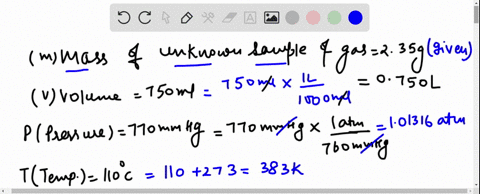 (m) Mass of unknown sample of gas = 2.35g (given)
(V) Volume = 750ml = 750ml × 1L/1000ml = 0.750L
P (Pressure) = 770mmHg = 770mmHg × 1atm/760mmHg = 1.01316 atm
T (Temp.) = 110°c = 110 + 273 = 383K